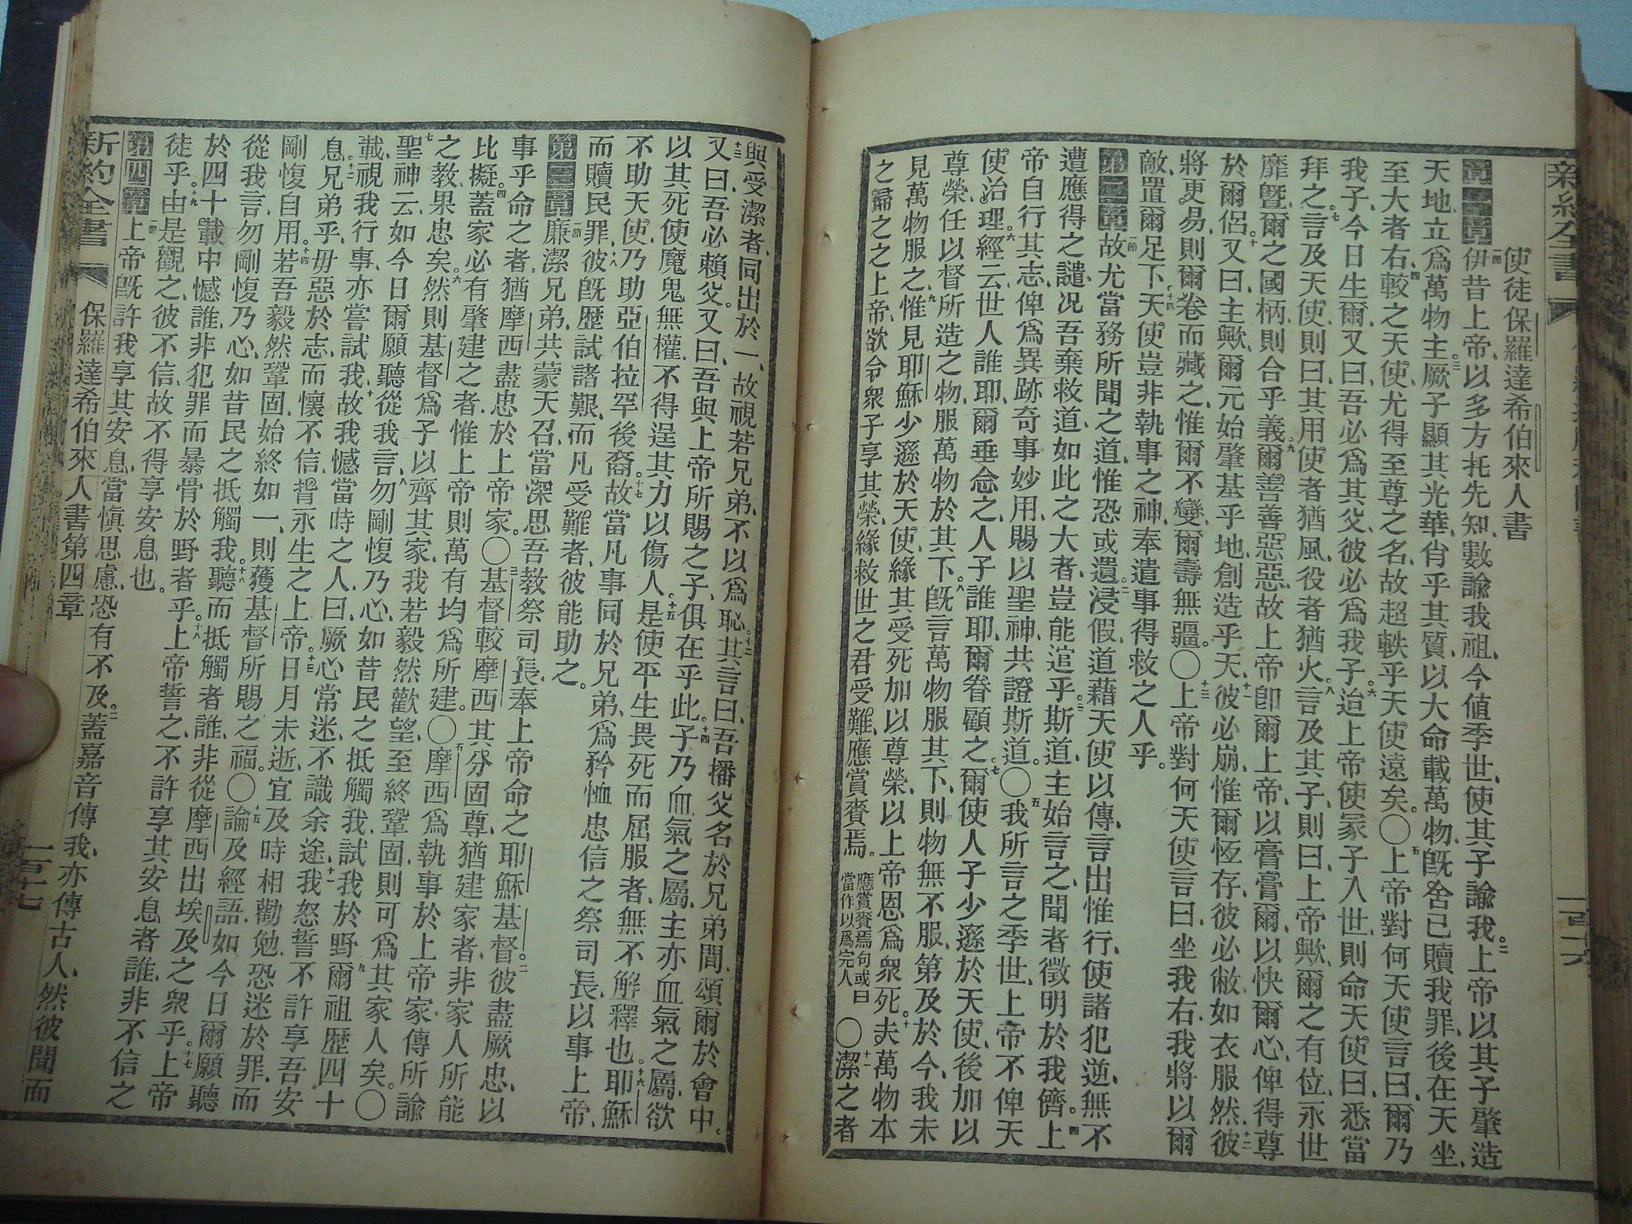 新約全書
使徒保羅達希伯來人書
第一章伊昔上帝以多方托先知數諭我祖今値季世使其子諭我二上帝以其子肇造
天地立爲萬物主三厥子顯其光華肖乎其質以大命載萬物旣舍己贖我罪後在天坐
至大者右四較之天使尤得至尊之名故超軼乎天使遠矣○五上帝對何天使言曰爾乃
我子今日生爾又曰吾必爲其父彼必爲我子六迨上帝使冢子入世則命天使曰悉當
拜之七言及天使則曰其用使者猶風役者猶火八言及其子則曰上帝歟爾之有位永世
靡曁爾之國柄則合乎義九爾善善惡惡故上帝卽爾上帝以膏膏爾以快爾心俾得尊
於爾侶十又曰主歟爾元始肇基乎地創造乎天十一彼必崩惟爾恆存彼必敝如衣服然十二彼
將更易則爾卷而藏之惟爾不變爾壽無疆○十三上帝對何天使言曰坐我右我將以爾
敵置爾足下十四天使豈非執事之神奉遣事得救之人乎
第二章故尤當務所聞之道惟恐或遺二浸假道藉天使以傳言出惟行使諸犯逆無不
遭應得之譴三況吾棄救道如此之大者豈能逭乎斯道主始言之聞者徵明於我儕四上
帝自行其志俾爲異跡奇事妙用賜以聖神共證斯道○五我所言之季世上帝不俾天
使治理六經云世人誰耶爾垂念之人子誰耶爾眷顧之七爾使人子少遜於天使後加以
尊榮任以督所造之物八服萬物於其下旣言萬物服其下則物無不服第及於今我未
見萬物服之九惟見耶穌少遜於天使緣其受死加以尊榮以上帝恩爲衆死十夫萬物本
之歸之之上帝欲令衆子享其榮緣救世之君受難應賞賚焉應賞賚焉句或曰當作以爲完人○十一潔之者
與受潔者同出於一故視若兄弟不以爲恥十二其言曰吾播父名於兄弟間頌爾於會中
十三又曰吾必賴父又曰吾與上帝所賜之子俱在乎此十四子乃血氣之屬主亦血氣之屬欲
以其死使魔鬼無權不得逞其力以傷人十五是使平生畏死而屈服者無不解釋也十六耶穌
不助天使乃助亞伯拉罕後裔十七故當凡事同於兄弟爲矜恤忠信之祭司長以事上帝
而贖民罪十八彼旣歷試諸艱而凡受難者彼能助之
第三章廉潔兄弟共蒙天召當深思吾敎祭司長奉上帝命之耶穌基督二彼盡厥忠以
事乎命之者猶摩西盡忠於上帝家○三基督較摩西其分固尊猶建家者非家人所能
比擬四蓋家必有肇建之者惟上帝則萬有均爲所建○五摩西爲執事於上帝家傳所諭
之敎果忠矣六然則基督爲子以齊其家我若毅然歡望至終鞏固則可爲其家人矣○
七聖神云如今日爾願聽從我言八勿剛愎乃心如昔民之抵觸我試我於野九爾祖歷四十
載視我行事亦嘗試我十故我憾當時之人曰厥心常迷不識余途十一我怒誓不許享吾安
息十二兄弟乎毋惡於志而懷不信背永生之上帝十三日月未逝宜及時相勸勉恐迷於罪而
剛愎自用十四若吾毅然鞏固始終如一則獲基督所賜之福○十五論及經語如今日爾願聽
從我言勿剛愎乃心如昔民之抵觸我十六聽而抵觸者誰非從摩西出埃及之衆乎十七上帝
於四十載中憾誰非犯罪而暴骨於野者乎十八上帝誓之不許享其安息者誰非不信之
徒乎十九由是觀之彼不信故不得享安息也
第四章上帝旣許我享其安息當愼思慮恐有不及二蓋嘉音傳我亦傳古人然彼聞而
新約全書 保羅達希伯來人書第四章 一百十七